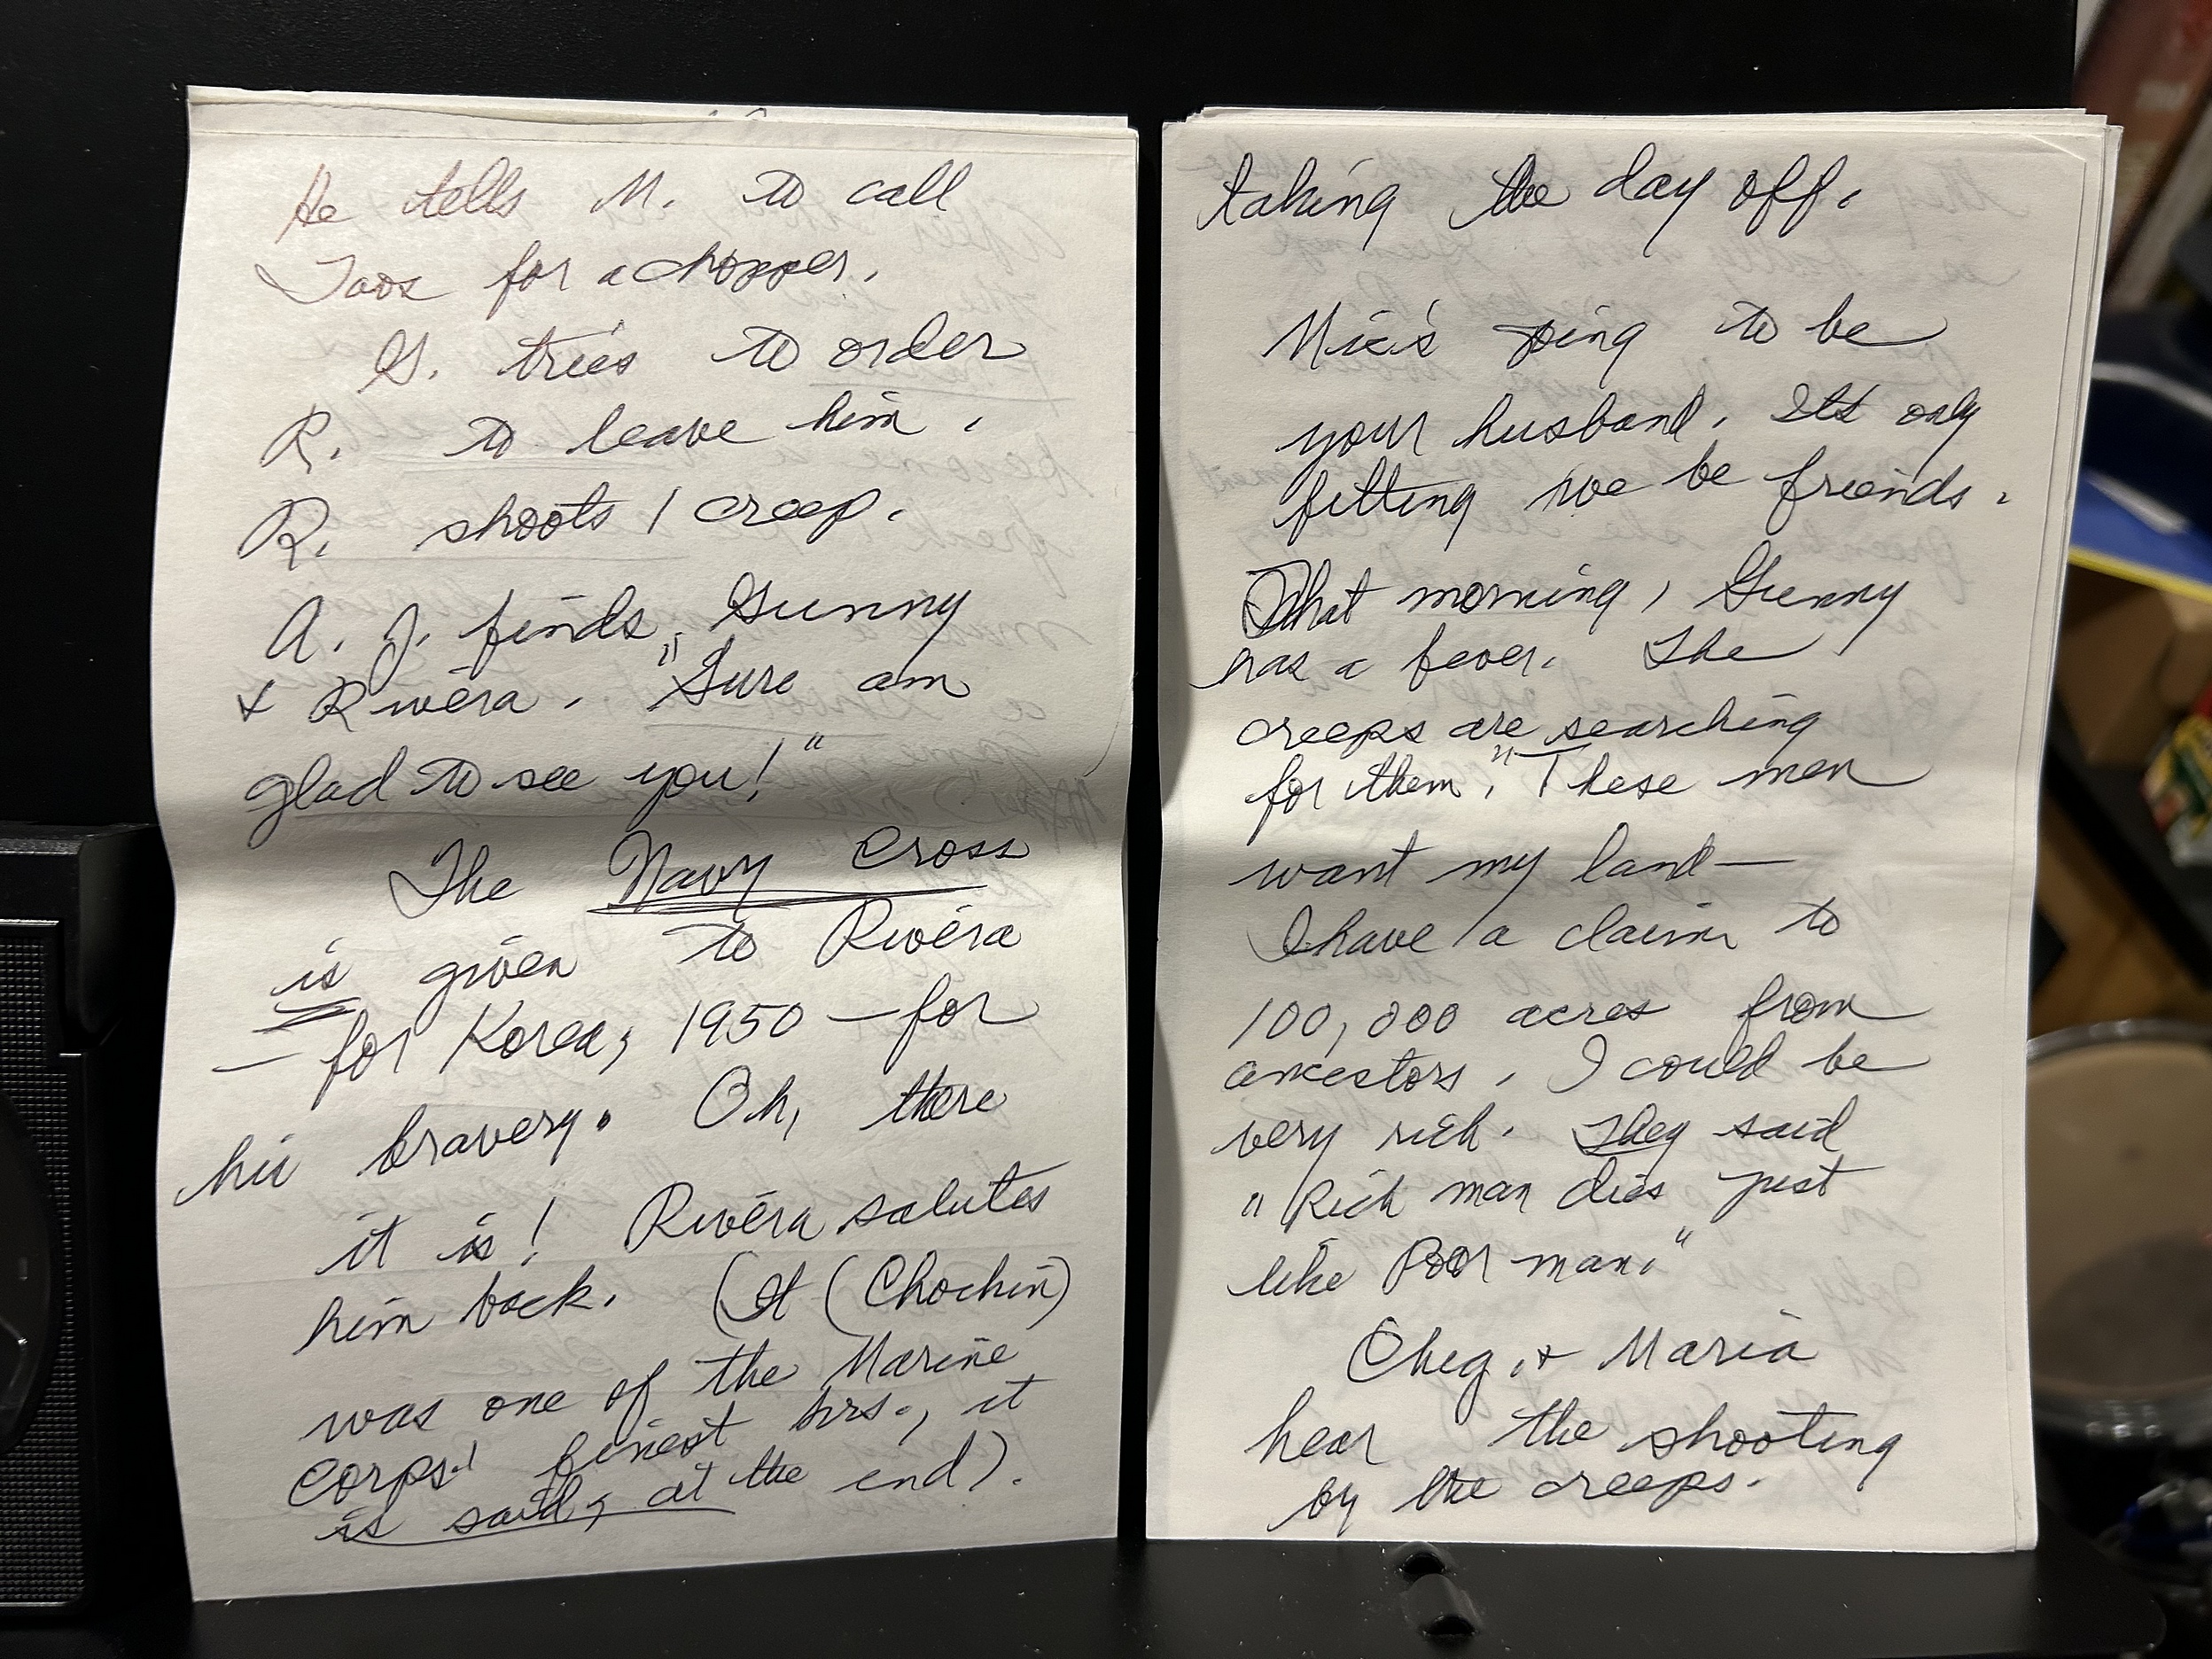 He tells M. to call
Taos for a chopper.
G. tries to order
R. to leave him.
R. shoots 1 creep.
A. J. finds Gunny
+ Rivéra. "Sure am
glad to see you!"
The Navy Cross
is given to Rivéra
— for Korea, 1950 — for
his bravery. Oh, there
it is! Rivéra salutes
him back. (It (Chochin)
was one of the Marine
Corps' finest hrs., it
is said, at the end).
taking the day off.
Mic's going to be
your husband. Its only
fitting we be friends.
That morning, Gunny
has a fever. The
creeps are searching
for them. "These men
want my land —
I have a claim to
100,000 acres from
ancestors. I could be
very rich. They said
"Rich man dies just
like Poor man."
Cheg. + Maria
hear the shooting
by the creeps.